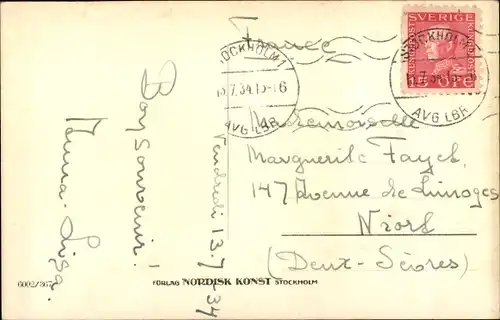 France
Bon souvenir!
Anna-Lisa.
Vendredi 13.7-34
STOCKHOLM 1
13.7.34.15-16
AVG LBR
SVERIGE
15 ÖRE
STOCKHOLM
AVG LBR
Mademoiselle
Marguerite Fayet.
147 Avenue de Limoges
Niort
(Deux-Sèvres)
6002/867
FÖRLAG NORDISK KONST STOCKHOLM